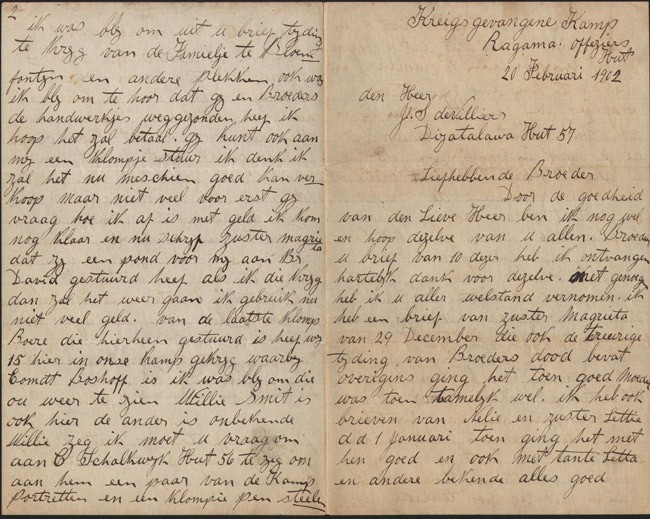 Kreigsgevangene Kamp
Ragama. Offiziers
Hut
20 Februari 1902
den Heer
J. S de Villiers
Diyatalawa Hut 57
Liefhebbende Broeder
Door de goedheid
van den Lieve Heer ben ik nog wel
en hoop dezelve van u allen. Broeder
u brief van 10 dezer heb ik ontvangen
hartelijk dank voor dezelve. Met genoegen
heb ik u aller welstand vernomen. ik
heb een brief van zuster Magrieta
van 29 December die ook de treurige
tyding van Broeders dood bevat
overigens ging het toen goed Moeder
was toen tamelyk wel. ik heb ook
brieven van Nelie en zuster Lettie
d d 1 Januari toen ging het met
hen goed en ook met tante Letta
en andere bekende alles goed
2
ik was bly om uit u brief tyding
te kryg van de Fameelje te Bloem
fontyn en andere plekken ook was
ik bly om te hoor dat gy en Broeders
de handwerkjes weggezonden heef ik
hoop het zal betaal. gy kunt ook aan
my een klompje stuur ik denk ik
zal het nu meschien goed kan ver
koop maar niet veel voor erst gy
vraag hoe ik af is met geld ik kom
nog klaar en nu schryf zuster magrieta
dat zy een pond voor my aan Br.
David gestuurd heef als ik die kryg
dan zal het weer gaan ik gebruik nu
niet veel geld. van de laatste klomp
Boere die hierheen gestuurd is heef wy
15 hier in onse kamp gekryg waarby
Comdt Boshoff is ik was bly om die
ou weer te zien Willie Smit is
ook hier de ander is onbekende
Willie zeg ik moet u vraag om
aan C Schalkwyk Hout 56 te zeg om
aan hem een paar van de Kamp
portretten en een klompie pen steele